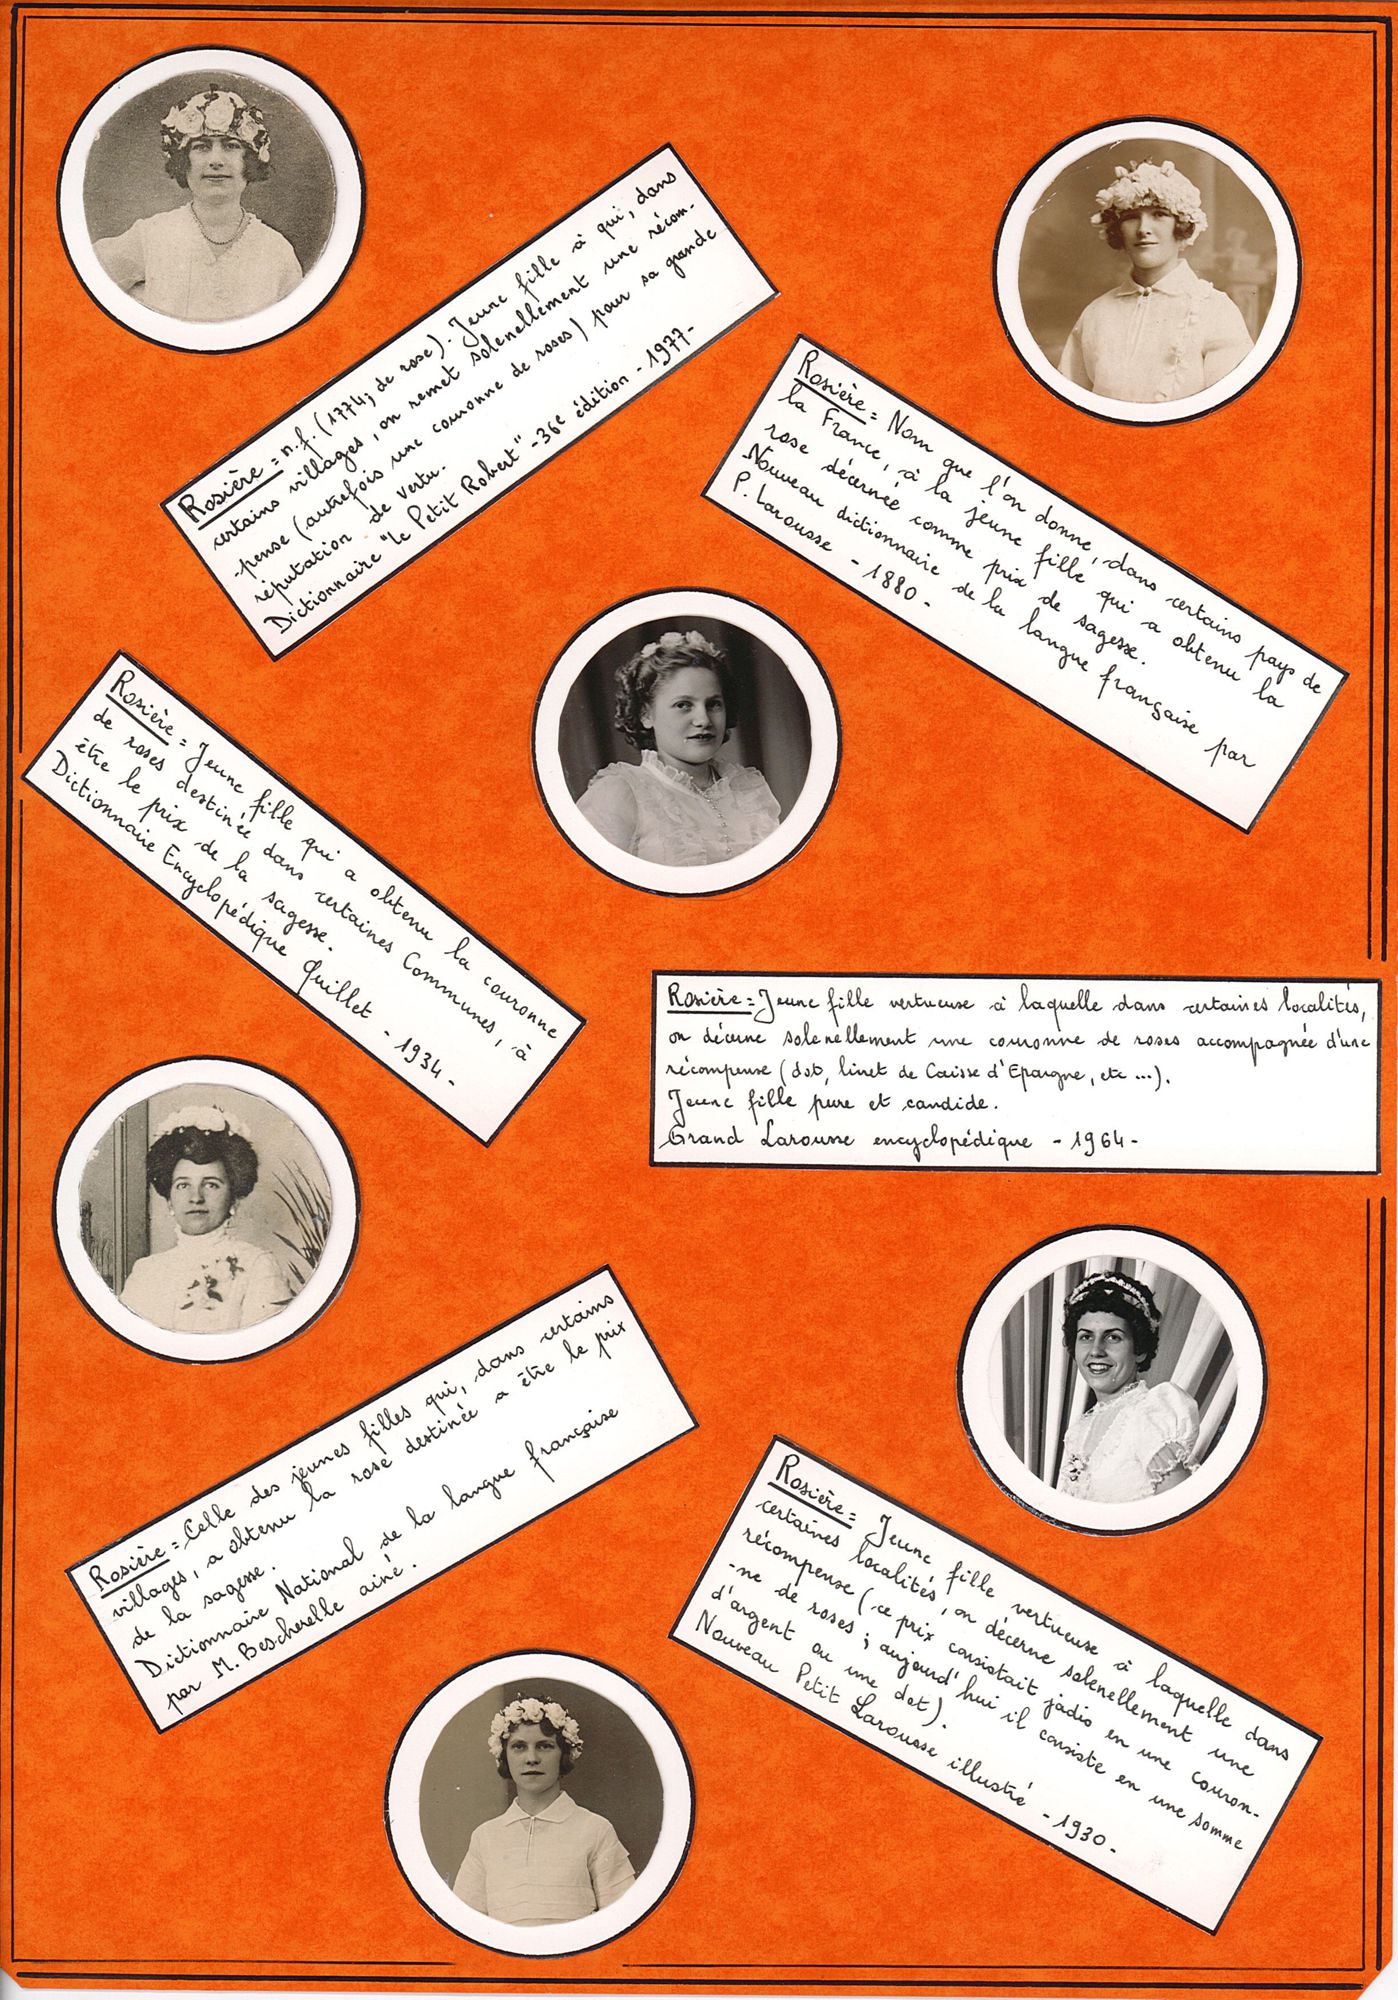 Rosière = n.f. (1774; de rose). Jeune fille à qui, dans
certains villages, on remet solenellement une récom-
-pense (autrefois une couronne de roses) pour sa grande
réputation de vertu.
Dictionnaire "le Petit Robert" - 36e édition - 1977 -
Rosière = Nom que l'on donne, dans certains pays de
la France, à la jeune fille qui a obtenu la
rose décernée comme prix de sagesse.
Nouveau dictionnaire de la langue française par
P. Larousse - 1880 -
Rosière = Jeune fille qui a obtenu la couronne
de roses destinée dans certaines Communes, à
être le prix de la sagesse.
Dictionnaire Encyclopédique Quillet - 1934 -
Rosière = Jeune fille vertueuse à laquelle dans certaines localités,
on décerne solenellement une couronne de roses accompagnée d'une
récompense (dot, livret de Caisse d'Epargne, etc ...).
Jeune fille pure et candide.
Grand Larousse encyclopédique - 1964 -
Rosière = Celle des jeunes filles qui, dans certains
villages, a obtenu la rose destinée a être le prix
de la sagesse.
Dictionnaire National de la langue française
par M. Bescherelle ainé.
Rosière = Jeune fille vertueuse à laquelle dans
certaines localités, on décerne solenellement une
récompense (ce prix consistait jadis en une couron-
-ne de roses ; aujourd'hui il consiste en une somme
d'argent ou une dot).
Nouveau Petit Larousse illustré - 1930 -